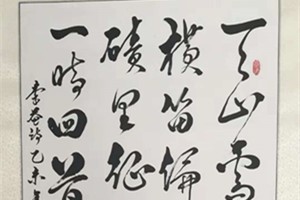 天山雪
横笛偏
磧里征
一時回首
李益詩乙未